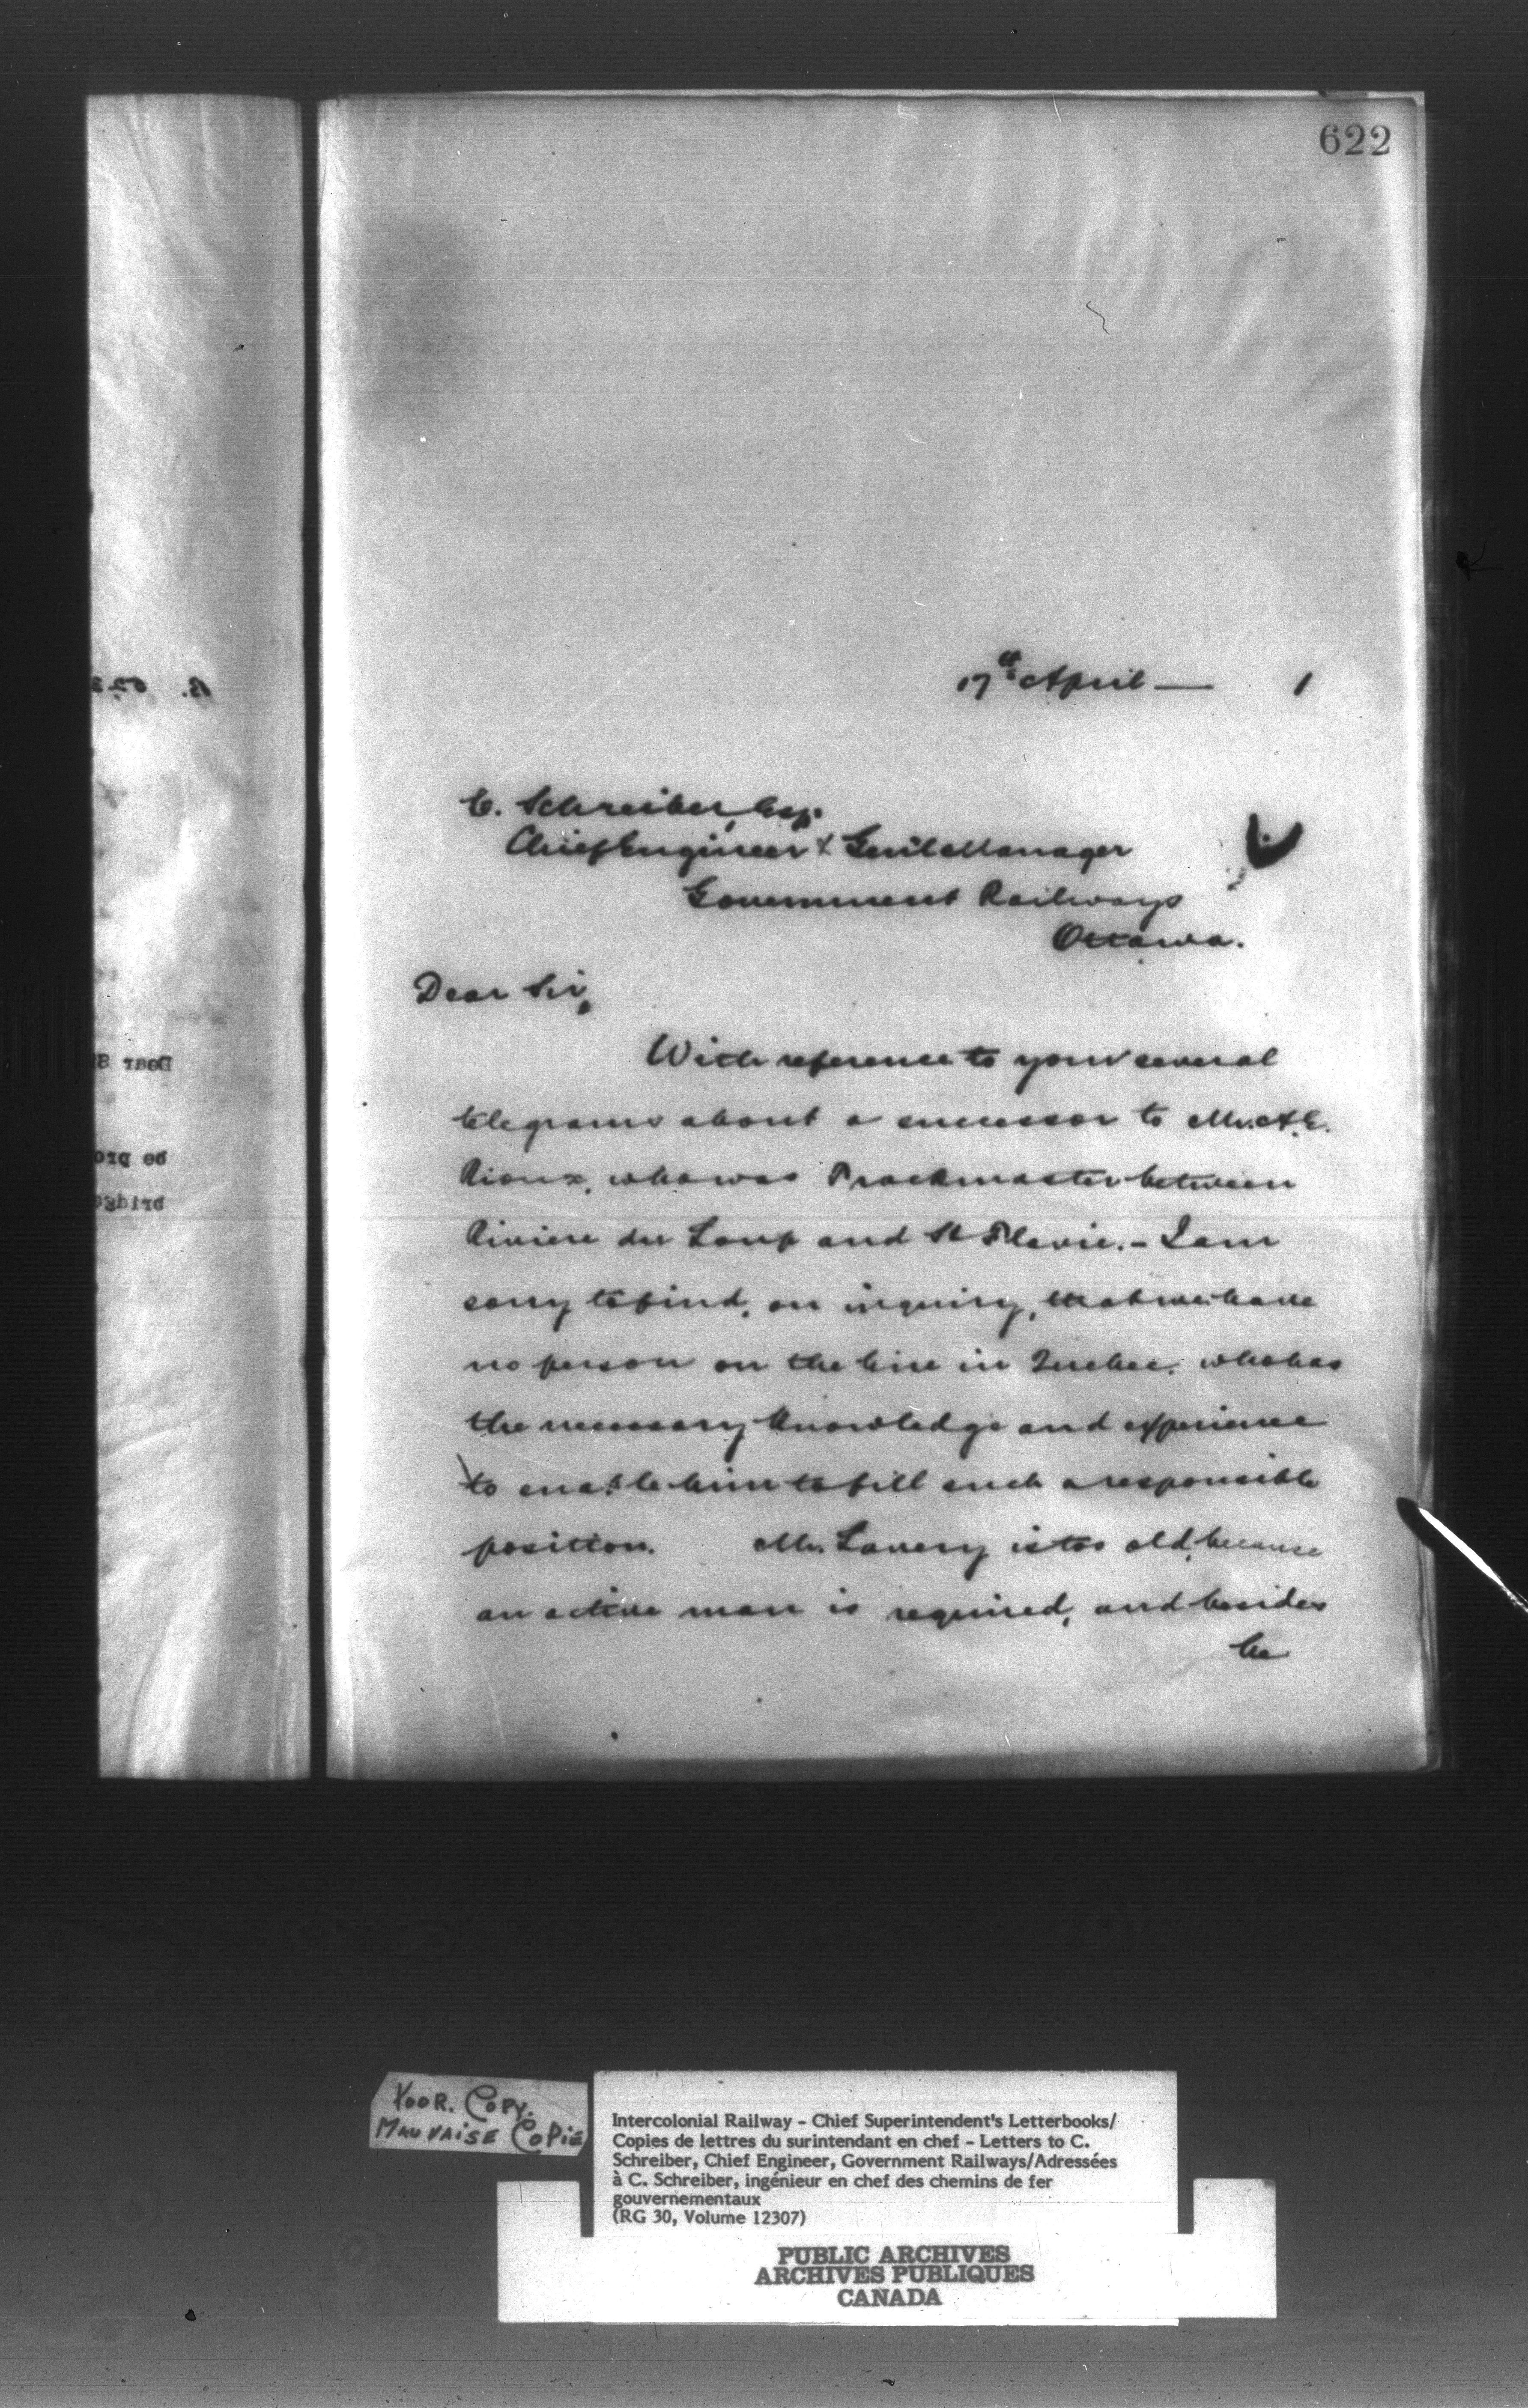 622
17th April — 1
C. Schreiber, Esq.
Chief Engineer & Gen'l Manager
Government Railways
Ottawa.
Dear Sir,
With reference to your several
telegrams about a successor to Mr. A. E.
Rioux, who was Trackmaster between
Riviere du Loup and St Flavie. – I am
sorry to find, on inquiry, that we have
no person on the line in Quebec, who has
the necessary knowledge and experience
to enable him to fill such a responsible
position. Mr. Lavery is too old, because
an active man is required, and besides
he
Dear S
be pro
bridge
POOR. COPY.
MAUVAISE COPIE
Intercolonial Railway - Chief Superintendent's Letterbooks/
Copies de lettres du surintendant en chef - Letters to C.
Schreiber, Chief Engineer, Government Railways/Adressées
à C. Schreiber, ingénieur en chef des chemins de fer
gouvernementaux
(RG 30, Volume 12307)
PUBLIC ARCHIVES
ARCHIVES PUBLIQUES
CANADA